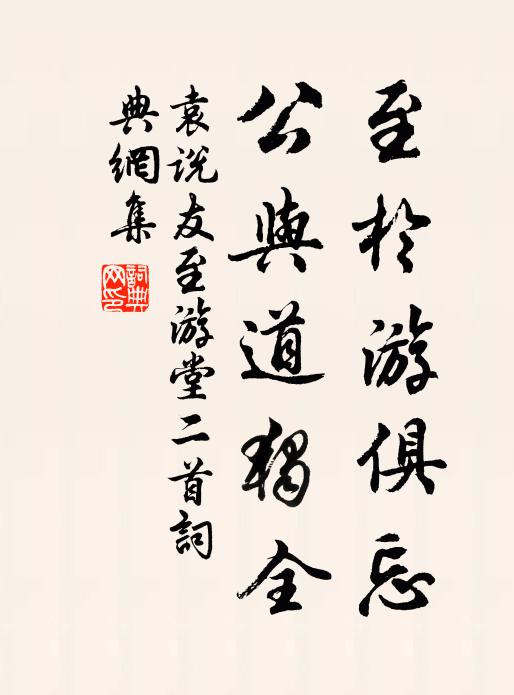 至於游俱忘
公與道獨全
袁說友至游堂二首詞
典網集
詞典網印